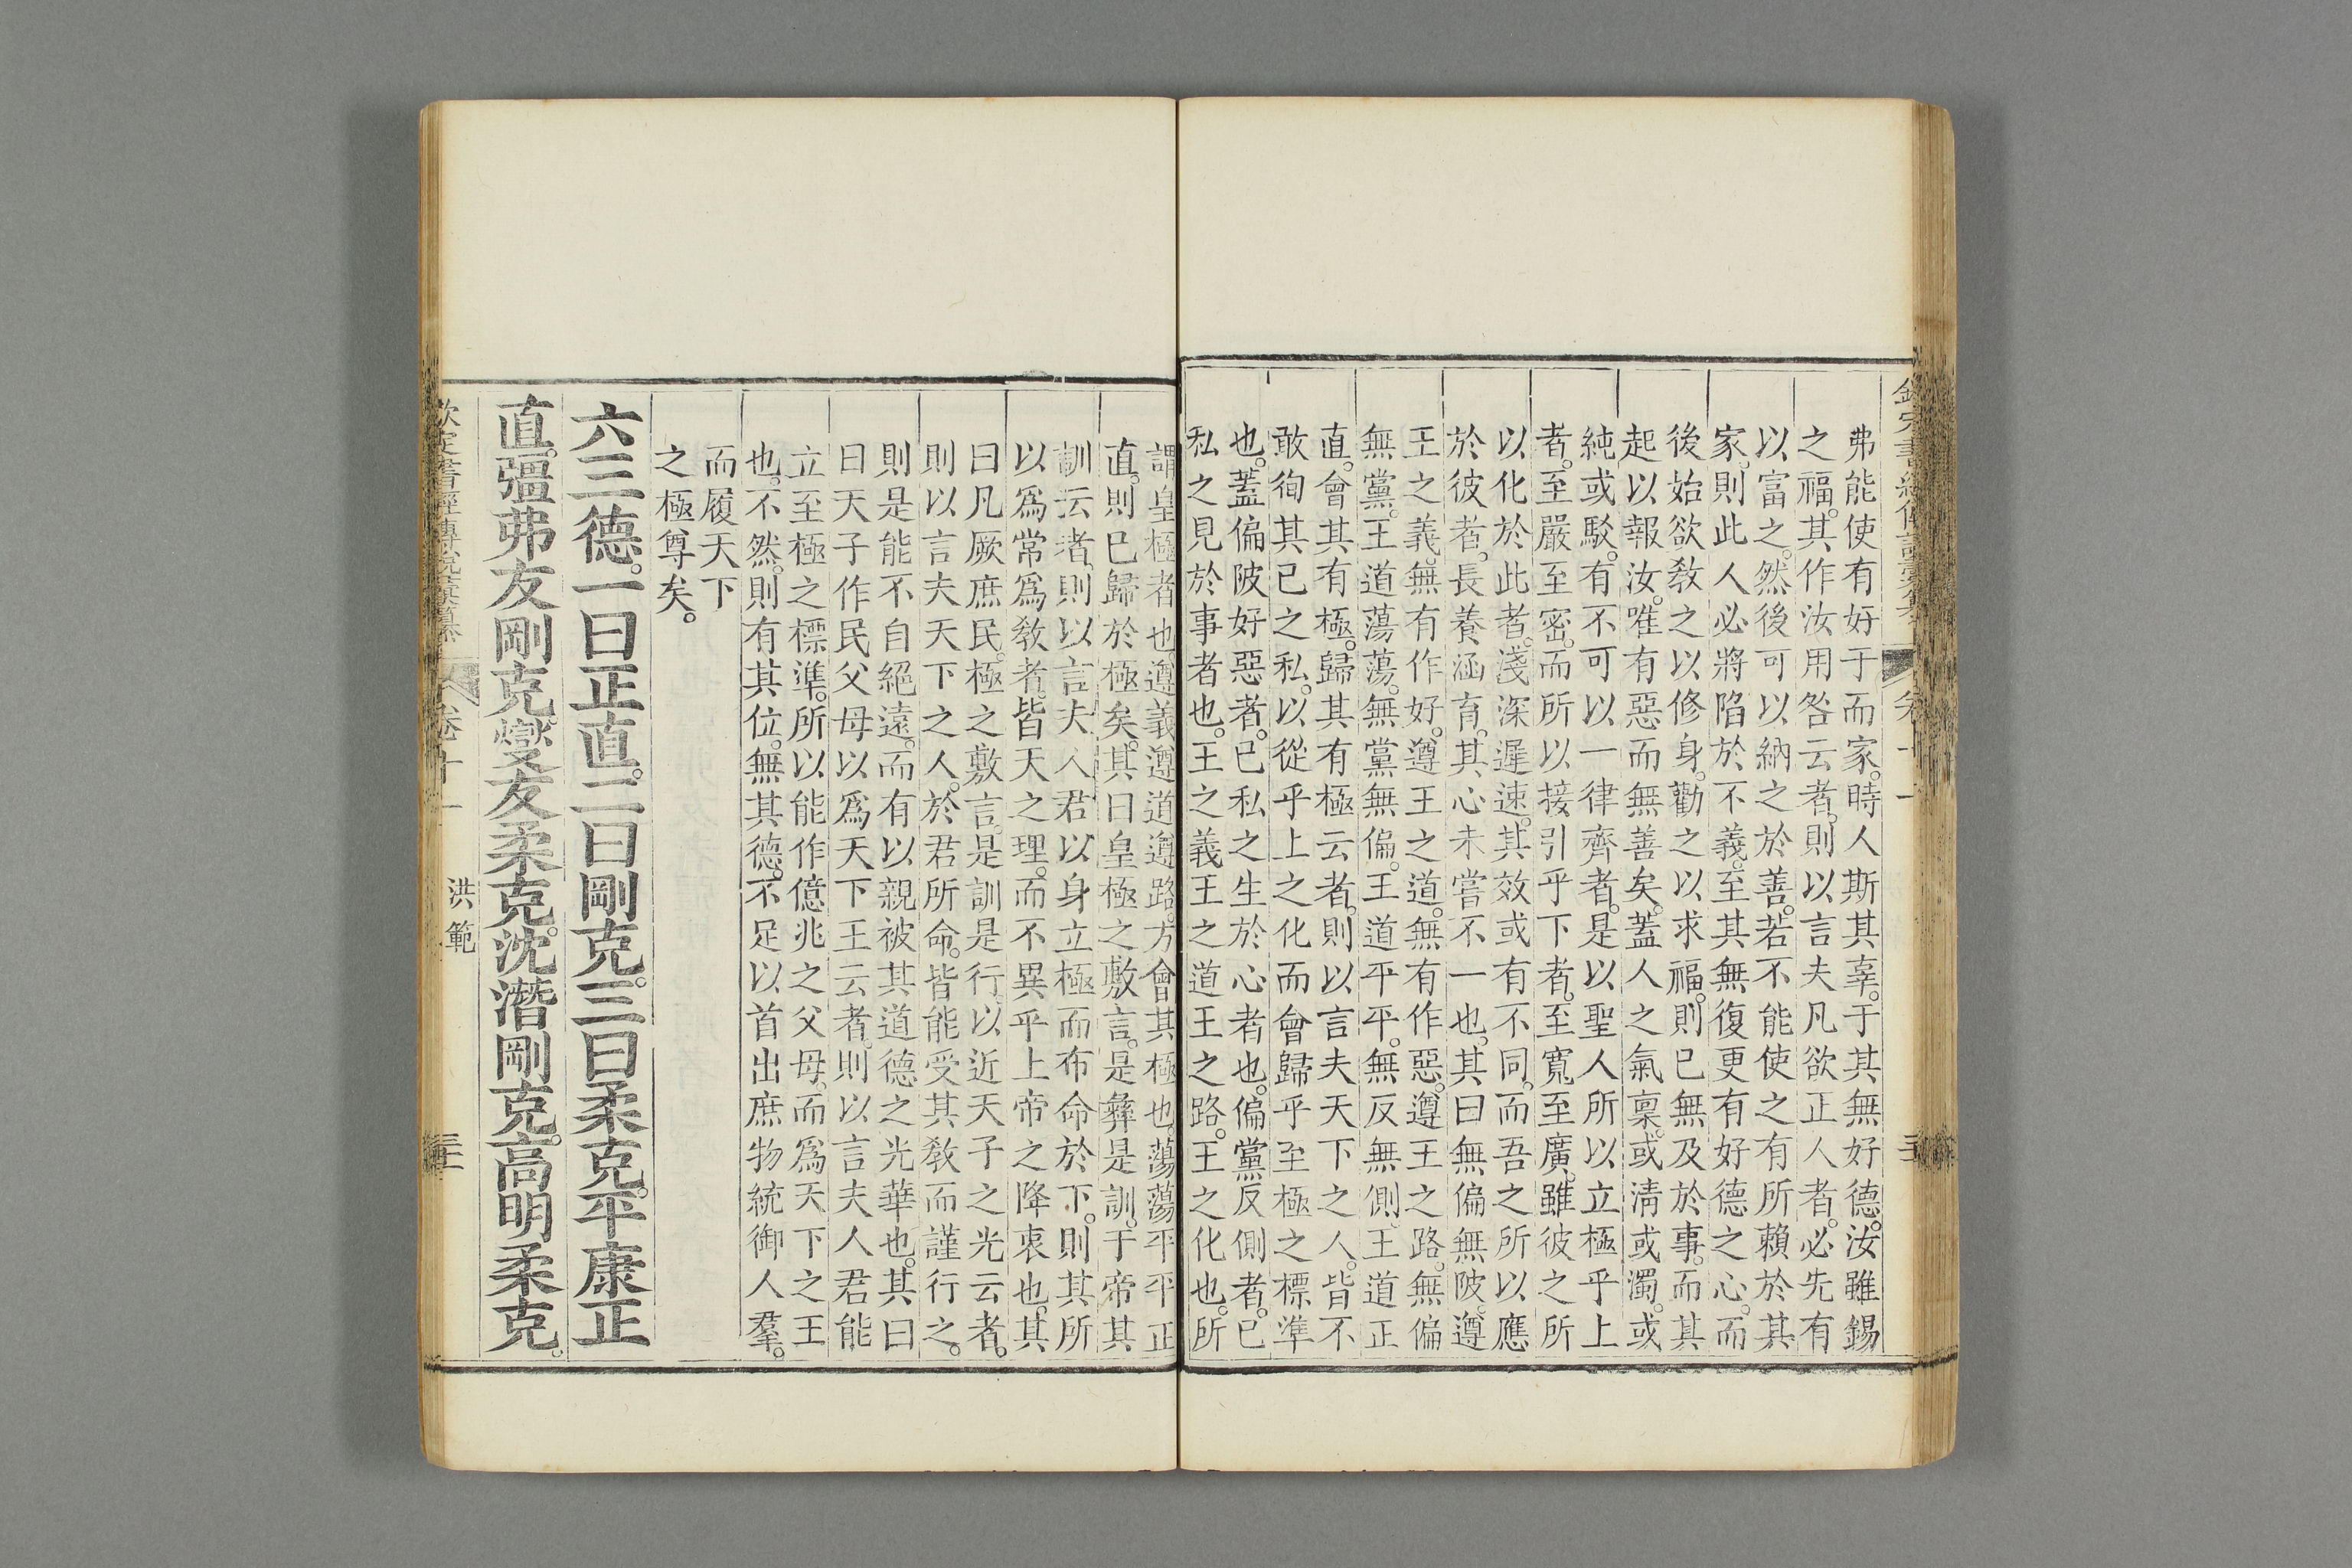 弗能使有好于而家。時人斯其辜。于其無好德。汝雖錫
之福。其作汝用咎云者。則以言夫凡欲正人者。必先有
以富之。然後可以納之於善。若不能使之有所賴於其
家。則此人必將陷於不義。至其無復更有好德之心。而
後始欲敎之以修身。勸之以求福。則已無及於事。而其
起以報汝。唯有惡而無善矣。蓋人之氣稟。或淸或濁。或
純或駁。有不可以一律齊者。是以聖人所以立極乎上
者。至嚴至密。而所以接引乎下者。至寬至廣。雖彼之所
以化於此者。淺深遲速。其效或有不同。而吾之所以應
於彼者。長養涵育。其心未嘗不一也。其曰無偏無陂。遵
王之義。無有作好。遵王之道。無有作惡。遵王之路。無偏
無黨。王道蕩蕩。無黨無偏。王道平平。無反無側。王道正
直。會其有極。歸其有極云者。則以言夫天下之人。皆不
敢徇其已之私。以從乎上之化而會歸乎至極之標準
也。蓋偏陂好惡者。已私之生於心者也。偏黨反側者。已
私之見於事者也。王之義王之道王之路。王之化也。所
謂皇極者也。遵義遵道遵路。方會其極也。蕩蕩平平正
直。則已歸於極矣。其曰皇極之敷言。是彝是訓。于帝其
訓云者。則以言夫人君以身立極而布命於下。則其所
以爲常爲敎者。皆天之理。而不異乎上帝之降衷也。其
曰凡厥庶民。極之敷言。是訓是行。以近天子之光云者。
則以言夫天下之人。於君所命。皆能受其敎而謹行之。
則是能不自絕遠。而有以親被其道德之光華也。其曰
曰天子作民父母以爲天下王云者。則以言夫人君能
立至極之標準。所以能作億兆之父母。而爲天下之王
也。不然。則有其位。無其德。不足以首出庶物統御人羣。
而履天下
之極尊矣。
六三德。一曰正直。二曰剛克。三曰柔克。平康正
直。彊弗友剛克。燮友柔克。沈潛剛克。高明柔克。
欽定書經傳說彙纂 卷十一 洪範